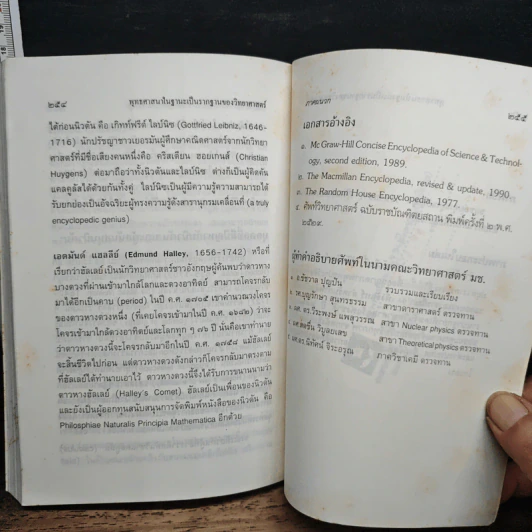 ๒๕๔ พุทธศาสนาในฐานะเป็นรากฐานของวิทยาศาสตร์
ได้ก่อนนิวตัน คือ เกิทท์ฟรีด์ ไลบ์นิซ (Gottfied Leibniz, 1646-
1716) นักปรัชญาชาวเยอรมันผู้ศึกษาคณิตศาสตร์จากนักวิทยา
ศาสตร์ที่มีชื่อเสียงคนหนึ่งคือ คริสเตียน ฮอยเกนส์ (Christian
Huygens) ต่อมาถือว่าทั้งนิวตันและไลบ์นิซ ต่างก็เป็นผู้คิดค้น
แคลคูลัสได้ด้วยกันทั้งคู่ ไลบ์นิซเป็นผู้มีความรู้ความสามารถได้
รับยกย่องเป็นอัจฉริยะผู้ทรงความรู้ดังสารานุกรมเคลื่อนที่ (a truly
encyclopedic genius)
เอดมันด์ แฮลลีย์ (Edmund Halley, 1656-1742) หรือที่
เรียกว่าฮัลเลย์เป็นนักวิทยาศาสตร์ชาวอังกฤษผู้ค้นพบว่าดาวหาง
บางดวงที่ผ่านเข้ามาใกล้โลกและดวงอาทิตย์ สามารถโคจรกลับ
มาได้อีกเป็นคาบ (period) ในปี ค.ศ. ๑๗๐๕ เขาคำนวณวงโคจร
ของดาวหางดวงหนึ่ง (ที่เคยโคจรเข้ามาในปี ค.ศ. ๑๖๘๒) ว่าจะ
โคจรเข้ามาใกล้ดวงอาทิตย์และโลกทุก ๆ ๗๖ ปี นั่นคือเขาทำนาย
ว่าดาวหางดวงนี้จะโคจรกลับมาอีกในปี ค.ศ. ๑๗๕๘ แม้ฮัลเลย์
จะสิ้นชีวิตไปก่อน แต่ดาวหางดวงดังกล่าวก็โคจรกลับมาตรงตาม
ที่ฮัลเลย์ได้ทำนายเอาไว้ ดาวหางดวงนี้จึงได้รับการขนานนามว่า
ดาวหางฮัลเลย์ (Halley's Comet) ฮัลเลย์เป็นเพื่อนของนิวตัน
และยังเป็นผู้ออกทุนสนับสนุนการจัดพิมพ์หนังสือของนิวตัน คือ
Philosphiae Naturalis Principia Mathematica อีกด้วย
ภาคผนวก ๒๕๕
เอกสารอ้างอิง
๑. Mc Graw-Hill Concise Encyclopedia of Science & Technol-
ogy, second edition, 1989.
๒. The Macmillan Encyclopedia, revised & update, 1990.
๓. The Random House Encyclopedia, 1977.
๔. ศัพท์วิทยาศาสตร์ ฉบับราชบัณฑิตยสถาน พิมพ์ครั้งที่ ๒ พ.ศ.
๒๕๓๙.
ผู้ทำคำอธิบายศัพท์ในนามคณะวิทยาศาสตร์ มช.
รวบรวมและเรียบเรียง
สาขาดาราศาสตร์ ตรวจทาน
สาขา Nuclear physics ตรวจทาน
สาขา Theoretical physics ตรวจทาน
ภาควิชาเคมี ตรวจทาน